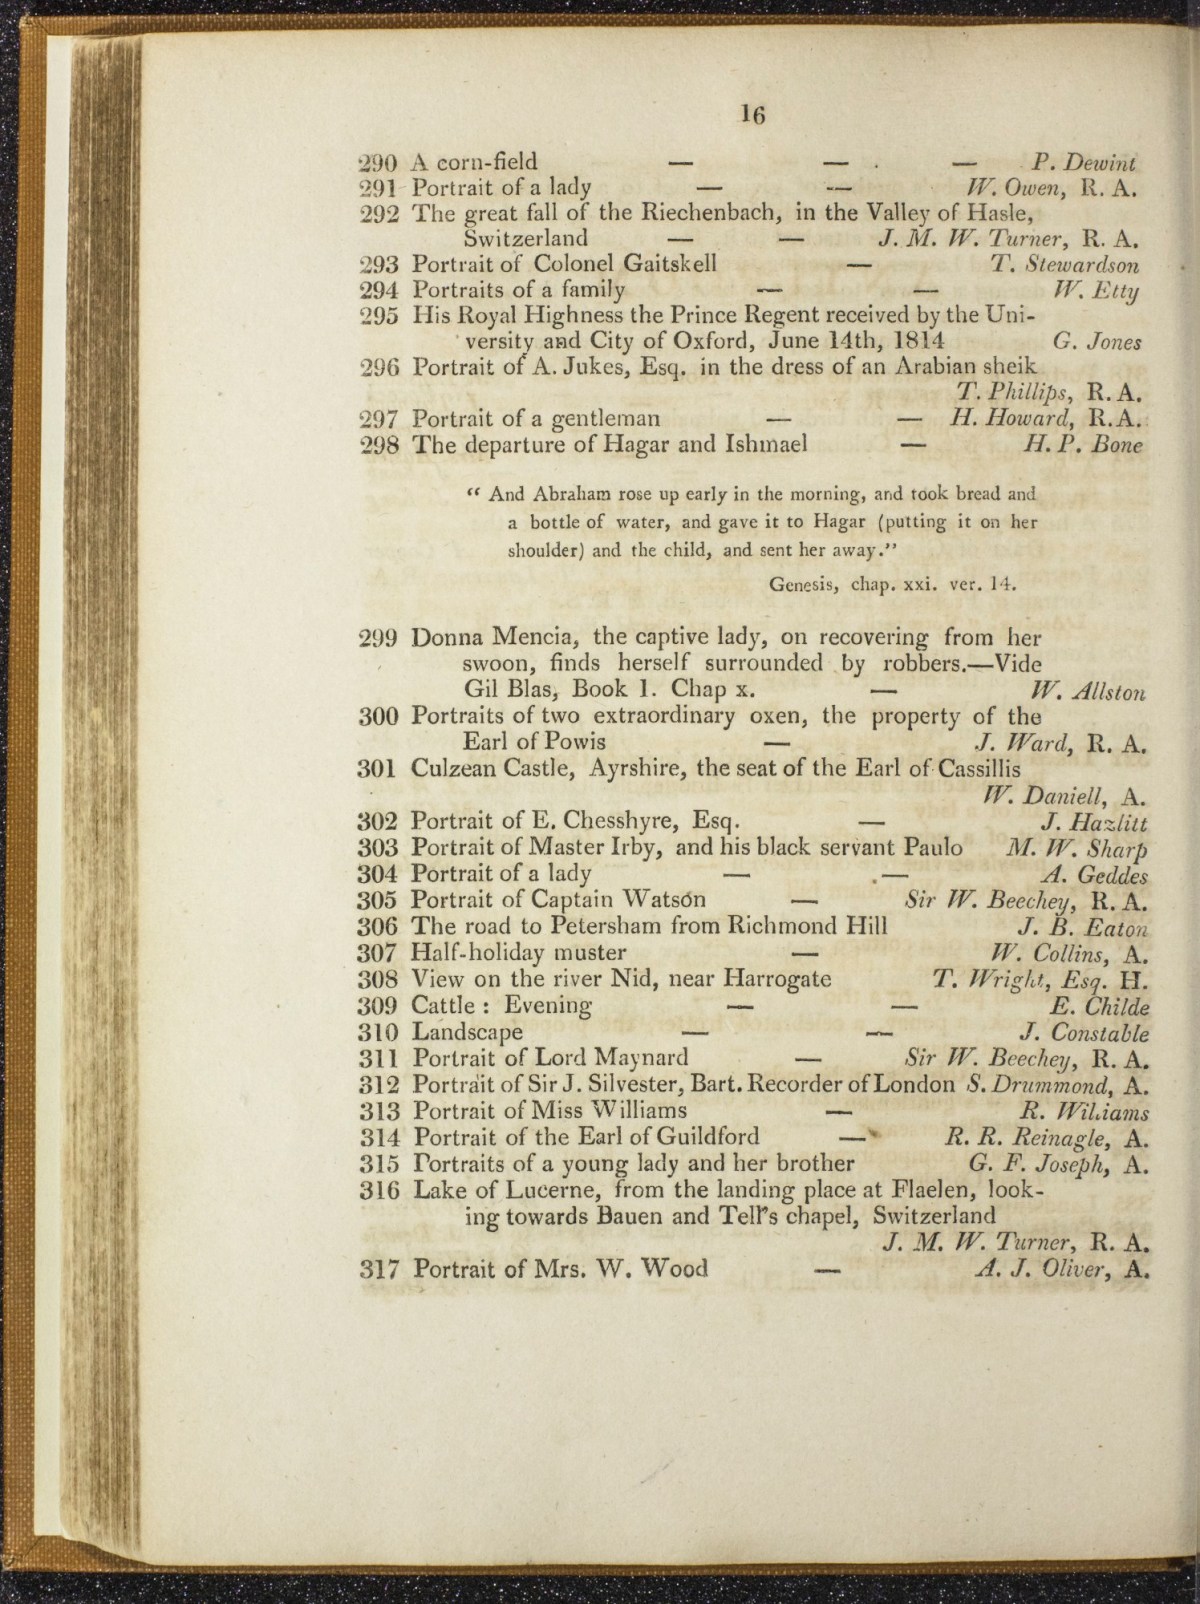 16
290 A corn-field — — — P. Dewint
291 Portrait of a lady — — W. Owen, R. A.
292 The great fall of the Riechenbach, in the Valley of Hasle,
Switzerland — — J. M. W. Turner, R. A.
293 Portrait of Colonel Gaitskell — T. Stewardson
294 Portraits of a family — — W. Etty
295 His Royal Highness the Prince Regent received by the Uni-
versity and City of Oxford, June 14th, 1814 G. Jones
296 Portrait of A. Jukes, Esq. in the dress of an Arabian sheik
T. Phillips, R. A.
297 Portrait of a gentleman — — H. Howard, R.A.
298 The departure of Hagar and Ishmael — H. P. Bone
“ And Abraham rose up early in the morning, and took bread and
a bottle of water, and gave it to Hagar (putting it on her
shoulder) and the child, and sent her away.”
Genesis, chap. xxi. ver. 14.
299 Donna Mencia, the captive lady, on recovering from her
swoon, finds herself surrounded by robbers.—Vide
Gil Blas, Book 1. Chap x. — W. Allston
300 Portraits of two extraordinary oxen, the property of the
Earl of Powis — J. Ward, R. A.
301 Culzean Castle, Ayrshire, the seat of the Earl of Cassillis
W. Daniell, A.
302 Portrait of E. Chesshyre, Esq. — J. Hazlitt
303 Portrait of Master Irby, and his black servant Paulo M. W. Sharp
304 Portrait of a lady — — A. Geddes
305 Portrait of Captain Watson — Sir W. Beechey, R. A.
306 The road to Petersham from Richmond Hill J. B. Eaton
307 Half-holiday muster — W. Collins, A.
308 View on the river Nid, near Harrogate T. Wright, Esq. H.
309 Cattle : Evening — — E. Childe
310 Landscape — — J. Constable
311 Portrait of Lord Maynard — Sir W. Beechey, R. A.
312 Portrait of Sir J. Silvester, Bart. Recorder of London S. Drummond, A.
313 Portrait of Miss Williams — R. Williams
314 Portrait of the Earl of Guildford — R. R. Reinagle, A.
315 Portraits of a young lady and her brother G. F. Joseph, A.
316 Lake of Lucerne, from the landing place at Flaelen, look-
ing towards Bauen and Tell's chapel, Switzerland
J. M. W. Turner, R. A.
317 Portrait of Mrs. W. Wood — A. J. Oliver, A.